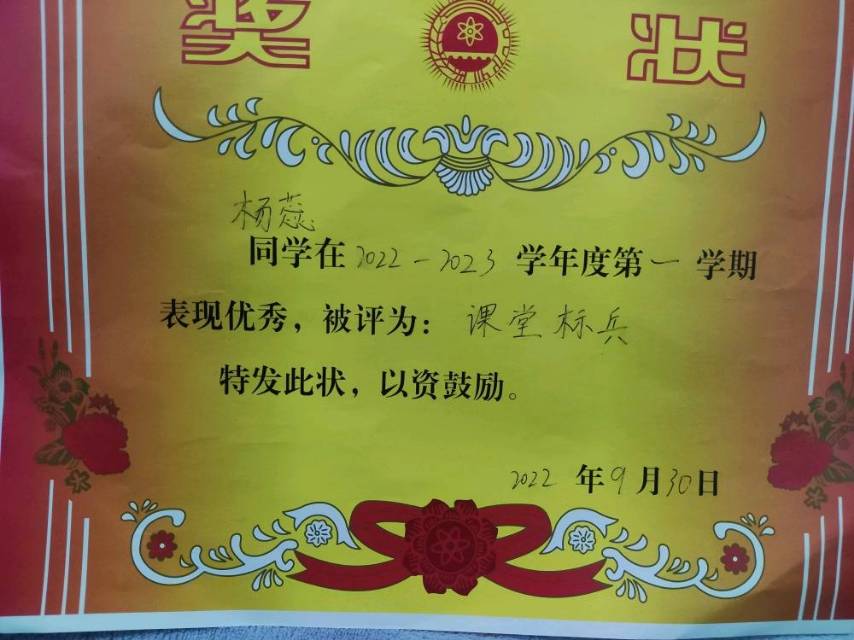 奖状
杨蕊
同学在2022-2023学年度第一学期
表现优秀，被评为：课堂标兵
特发此状，以资鼓励。
2022年9月30日